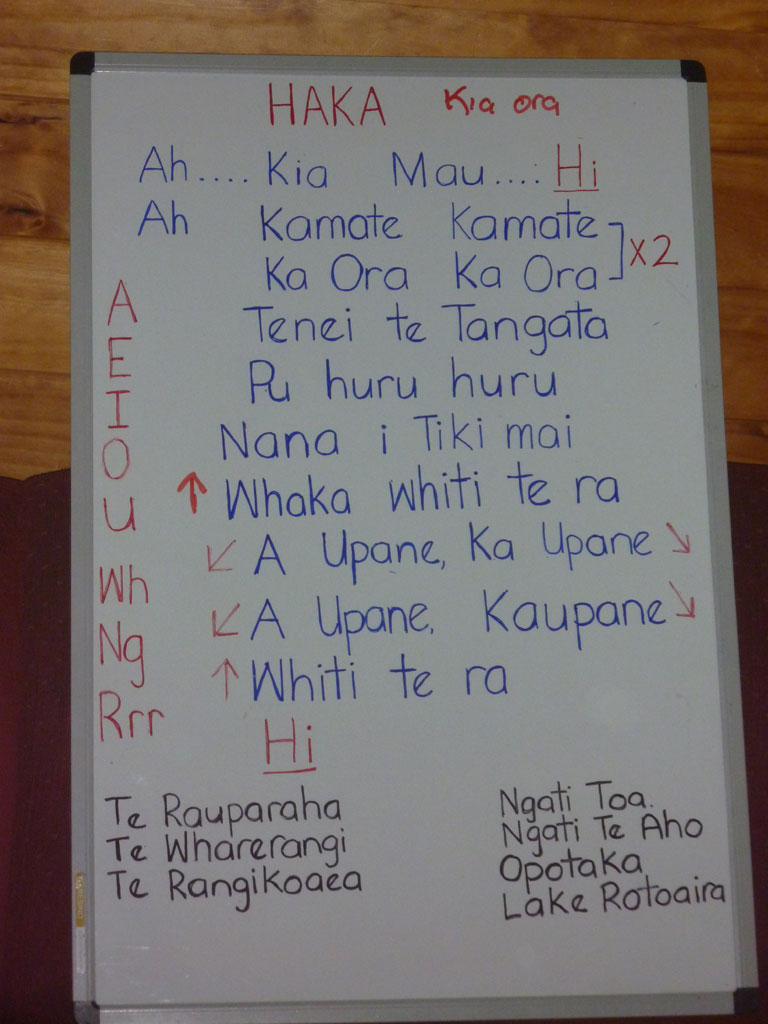 HAKA Kia ora
Ah.... Kia Mau.... Hi
Ah Kamate Kamate
Ka Ora Ka Ora x2
Tenei te Tangata
Pu huru huru
Nana i Tiki mai
↑ Whaka whiti te ra
↙ A Upane, Ka Upane ↘
↙ A Upane, Kaupane ↘
↑ Whiti te ra
Hi
A
E
I
O
U
Wh
Ng
Rrr
Te Rauparaha
Te Wharerangi
Te Rangikoaea
Ngati Toa.
Ngati Te Aho
Opotaka
Lake Rotoaira